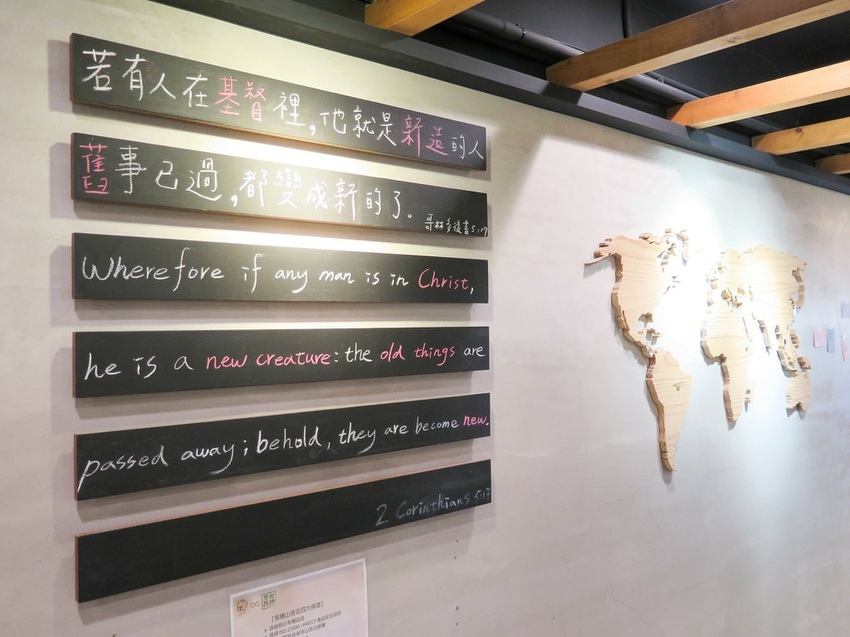 若有人在基督裡,他就是新造的人
舊事已過,都變成新的了。
哥林多後書5:17
Wherefore if any man is in Christ,
he is a new creature: the old things are
passed away; behold, they are become new.
2 Corinthians 5:17
【有機山苦瓜四大保證】